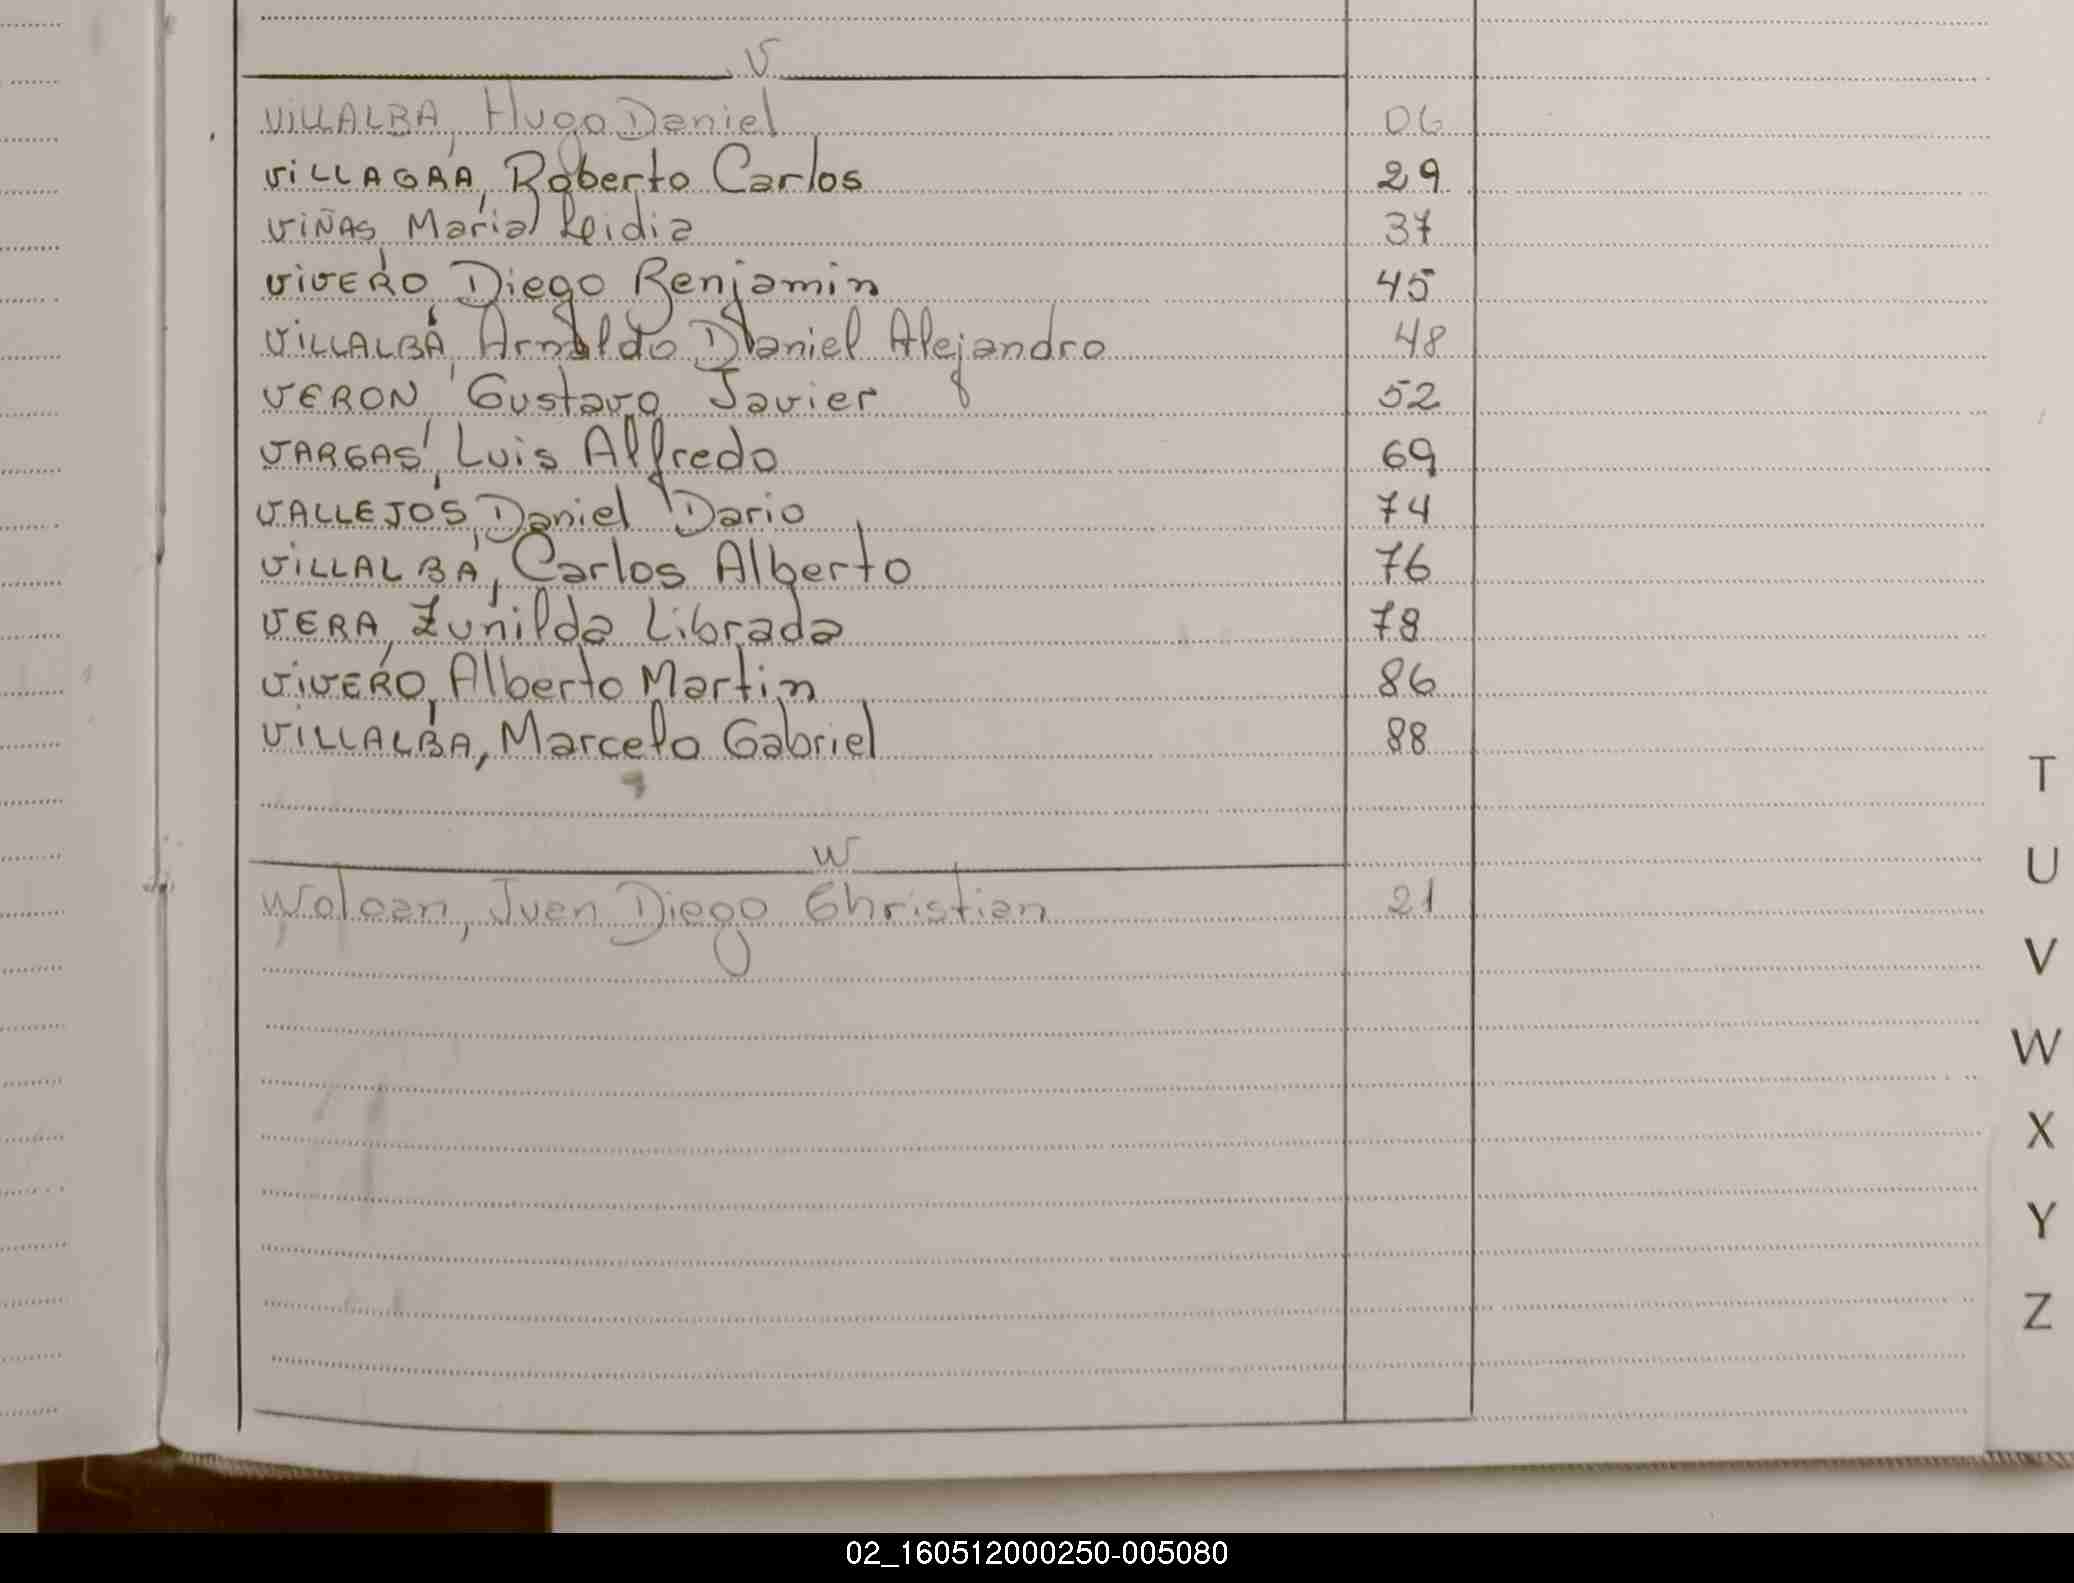 V
ViLLALBA, Hugo Daniel 06
ViLLAGRA, Roberto Carlos 29
ViÑAS, María Leidia 37
ViVERO, Diego Benjamin 45
ViLLALBA, Arnaldo Daniel Alejandro 48
VERON, Gustavo Javier 52
VARGAS, Luis Alfredo 69
VALLEJOS, Daniel Dario 74
ViLLALBA, Carlos Alberto 76
VERA, Zunilda Librada 78
ViVERO, Alberto Martin 86
ViLLALBA, Marcelo Gabriel 88
W
Juan Diego Christian 21
T
U
V
W
X
Y
Z
02_160512000250-005080